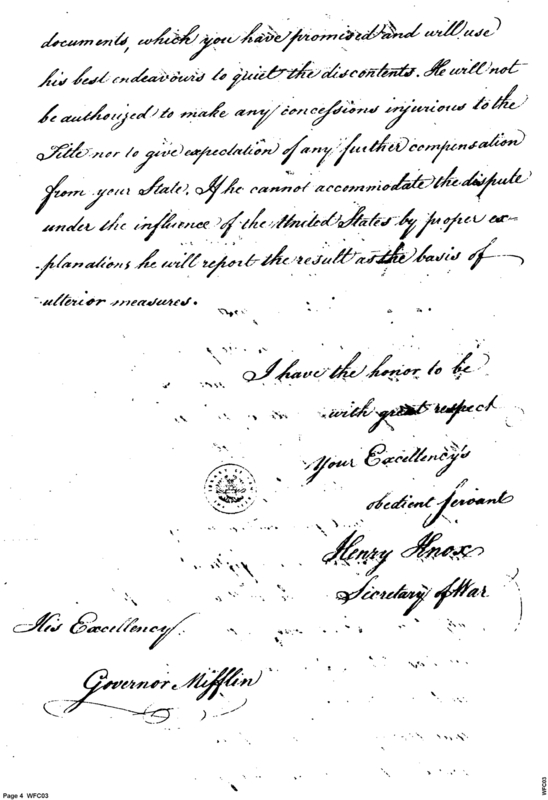 documents, which you have promised and will use
his best endeavours to quiet the discontents. He will not
be authorized to make any concessions injurious to the
Title nor to give expectation of any further compensation
from your State. If he cannot accommodate the dispute
under the influence of the United States by proper ex-
planations he will report the result as the basis of
ulterior measures.
I have the honor to be
with great respect
Your Excellency's
obedient servant
Henry Knox
Secretary of War
His Excellency
Governor Mifflin
Page 4 WFC03
WFC03